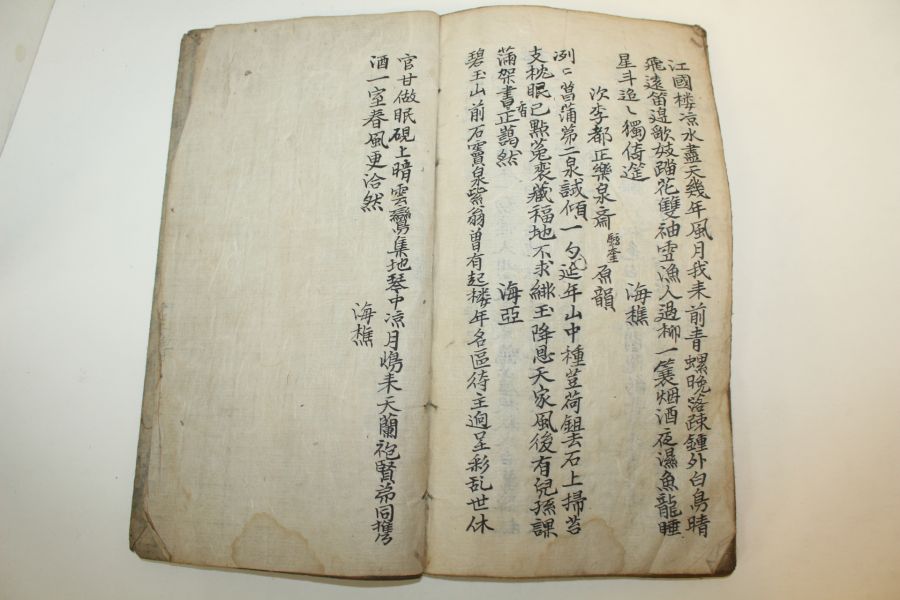 江國楼凉水盡天幾年風月我来前青螺晩落疎鍾外白鳥晴
飛遠笛邊歌妓踏花雙袖雪漁人過柳一簑烟酒夜濕魚龍睡
星斗迢〻獨倚筵
海樵
次李都正樂泉斎奎原韻
冽〻菖蒲第二泉試傾一勺延年山中種荳荷鋤去石上掃苔
支枕眠已點菟裘藏福地不求緋玉降恩天家風後有兒孫課
滿架書香正藹然
海亞
碧玉山前石竇泉紫翁曽有起楼年名區待主逈呈彩乱世休
官甘做眠硯上暗雲鸞集地琴中凉月鳧来天蘭袍賢弟同携
酒一室春風更洽然
海樵